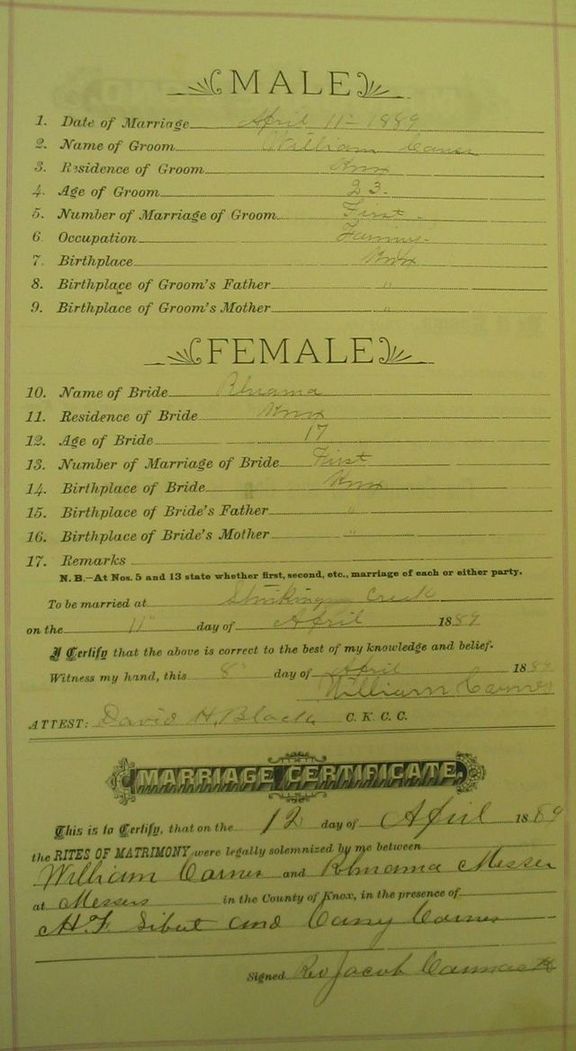 MALE
1. Date of Marriage April 11th 1889
2. Name of Groom William Carnes
3. Residence of Groom Knox
4. Age of Groom 23.
5. Number of Marriage of Groom First.
6. Occupation Farmer
7. Birthplace Knox
8. Birthplace of Groom's Father "
9. Birthplace of Groom's Mother "
FEMALE
10. Name of Bride Rhuama
11. Residence of Bride Knox
12. Age of Bride 17
13. Number of Marriage of Bride First
14. Birthplace of Bride Knox
15. Birthplace of Bride's Father "
16. Birthplace of Bride's Mother "
17. Remarks
N. B.—At Nos. 5 and 13 state whether first, second, etc., marriage of each or either party.
To be married at Stinking Creek
on the 11" day of April 1889
I Certify that the above is correct to the best of my knowledge and belief.
Witness my hand, this 8" day of April 1889
William Carnes
ATTEST: David H. Black C. K. C. C.
MARRIAGE CERTIFICATE.
This is to Certify, that on the 12 day of April 1889
the RITES OF MATRIMONY were legally solemnized by me between
William Carnes and Rhuama Messer
at Messers in the County of Knox, in the presence of
H. F. and Carnes
Signed Rev Jacob